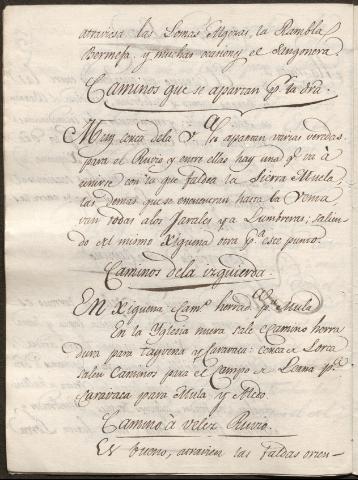 atraviesa las Lomas Mejoras, la Rambla
Bermeja, y muchas ocasiones el Sangonera.
Caminos que se apartan pr. la dra.
Muy cerca dela Va. se apartan varias veredas
para el Rubio, y entre ellas hay una qe. va à
unirse con la que faldea la Sierra Muela;
las demas que se encuentran hasta la Venta
van todas alos Jarales, ya Lumbreras; salien
do del mismo Xiquena otra pa. este punto.
Caminos dela izquierda.
En Xiquena Camo. herrada. pa. Mula
En la Iglesia nueva sale el camino herra
dura para y Caravaca: cerca de Lorca
salen Caminos para el Campo de Coana pa.
Caravaca para Mula y
Camino à Velez Rubio.
Es bueno, atraviesa las faldas orien-